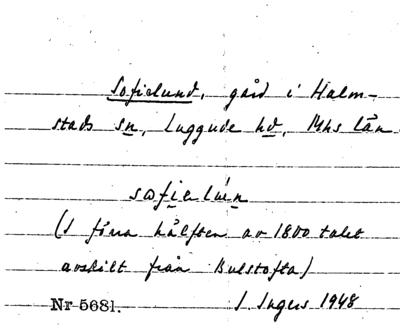 Sofielund, gård i Halm-
stads sn, Luggude hd, Mhs län
sofielún
(I förra hälften av 1800 talet
avskilt från Bulstofta)
Nr 5681. I. Ingers 1948